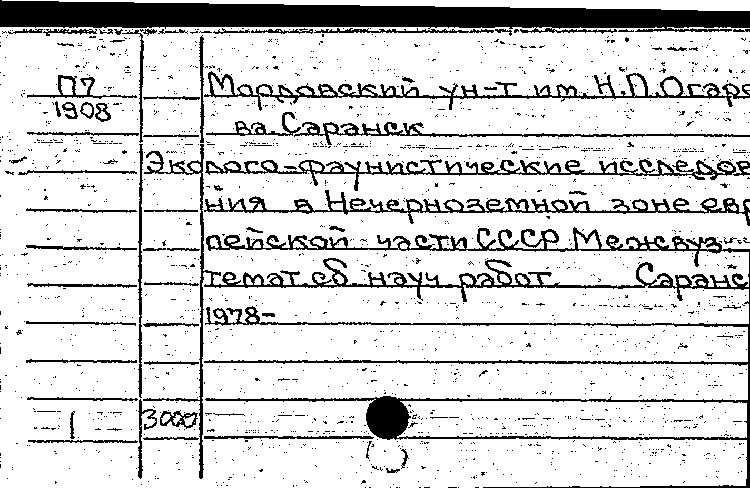 П7 Мордовский ун-т им. Н.П.Огарё
1908
ва. Саранск
Эколого-фаунистические исследов
ния в Нечерноземной зоне евр
пейской части СССР Межвуз.
темат. сб. науч. работ. Саранс
1978-
1 3000